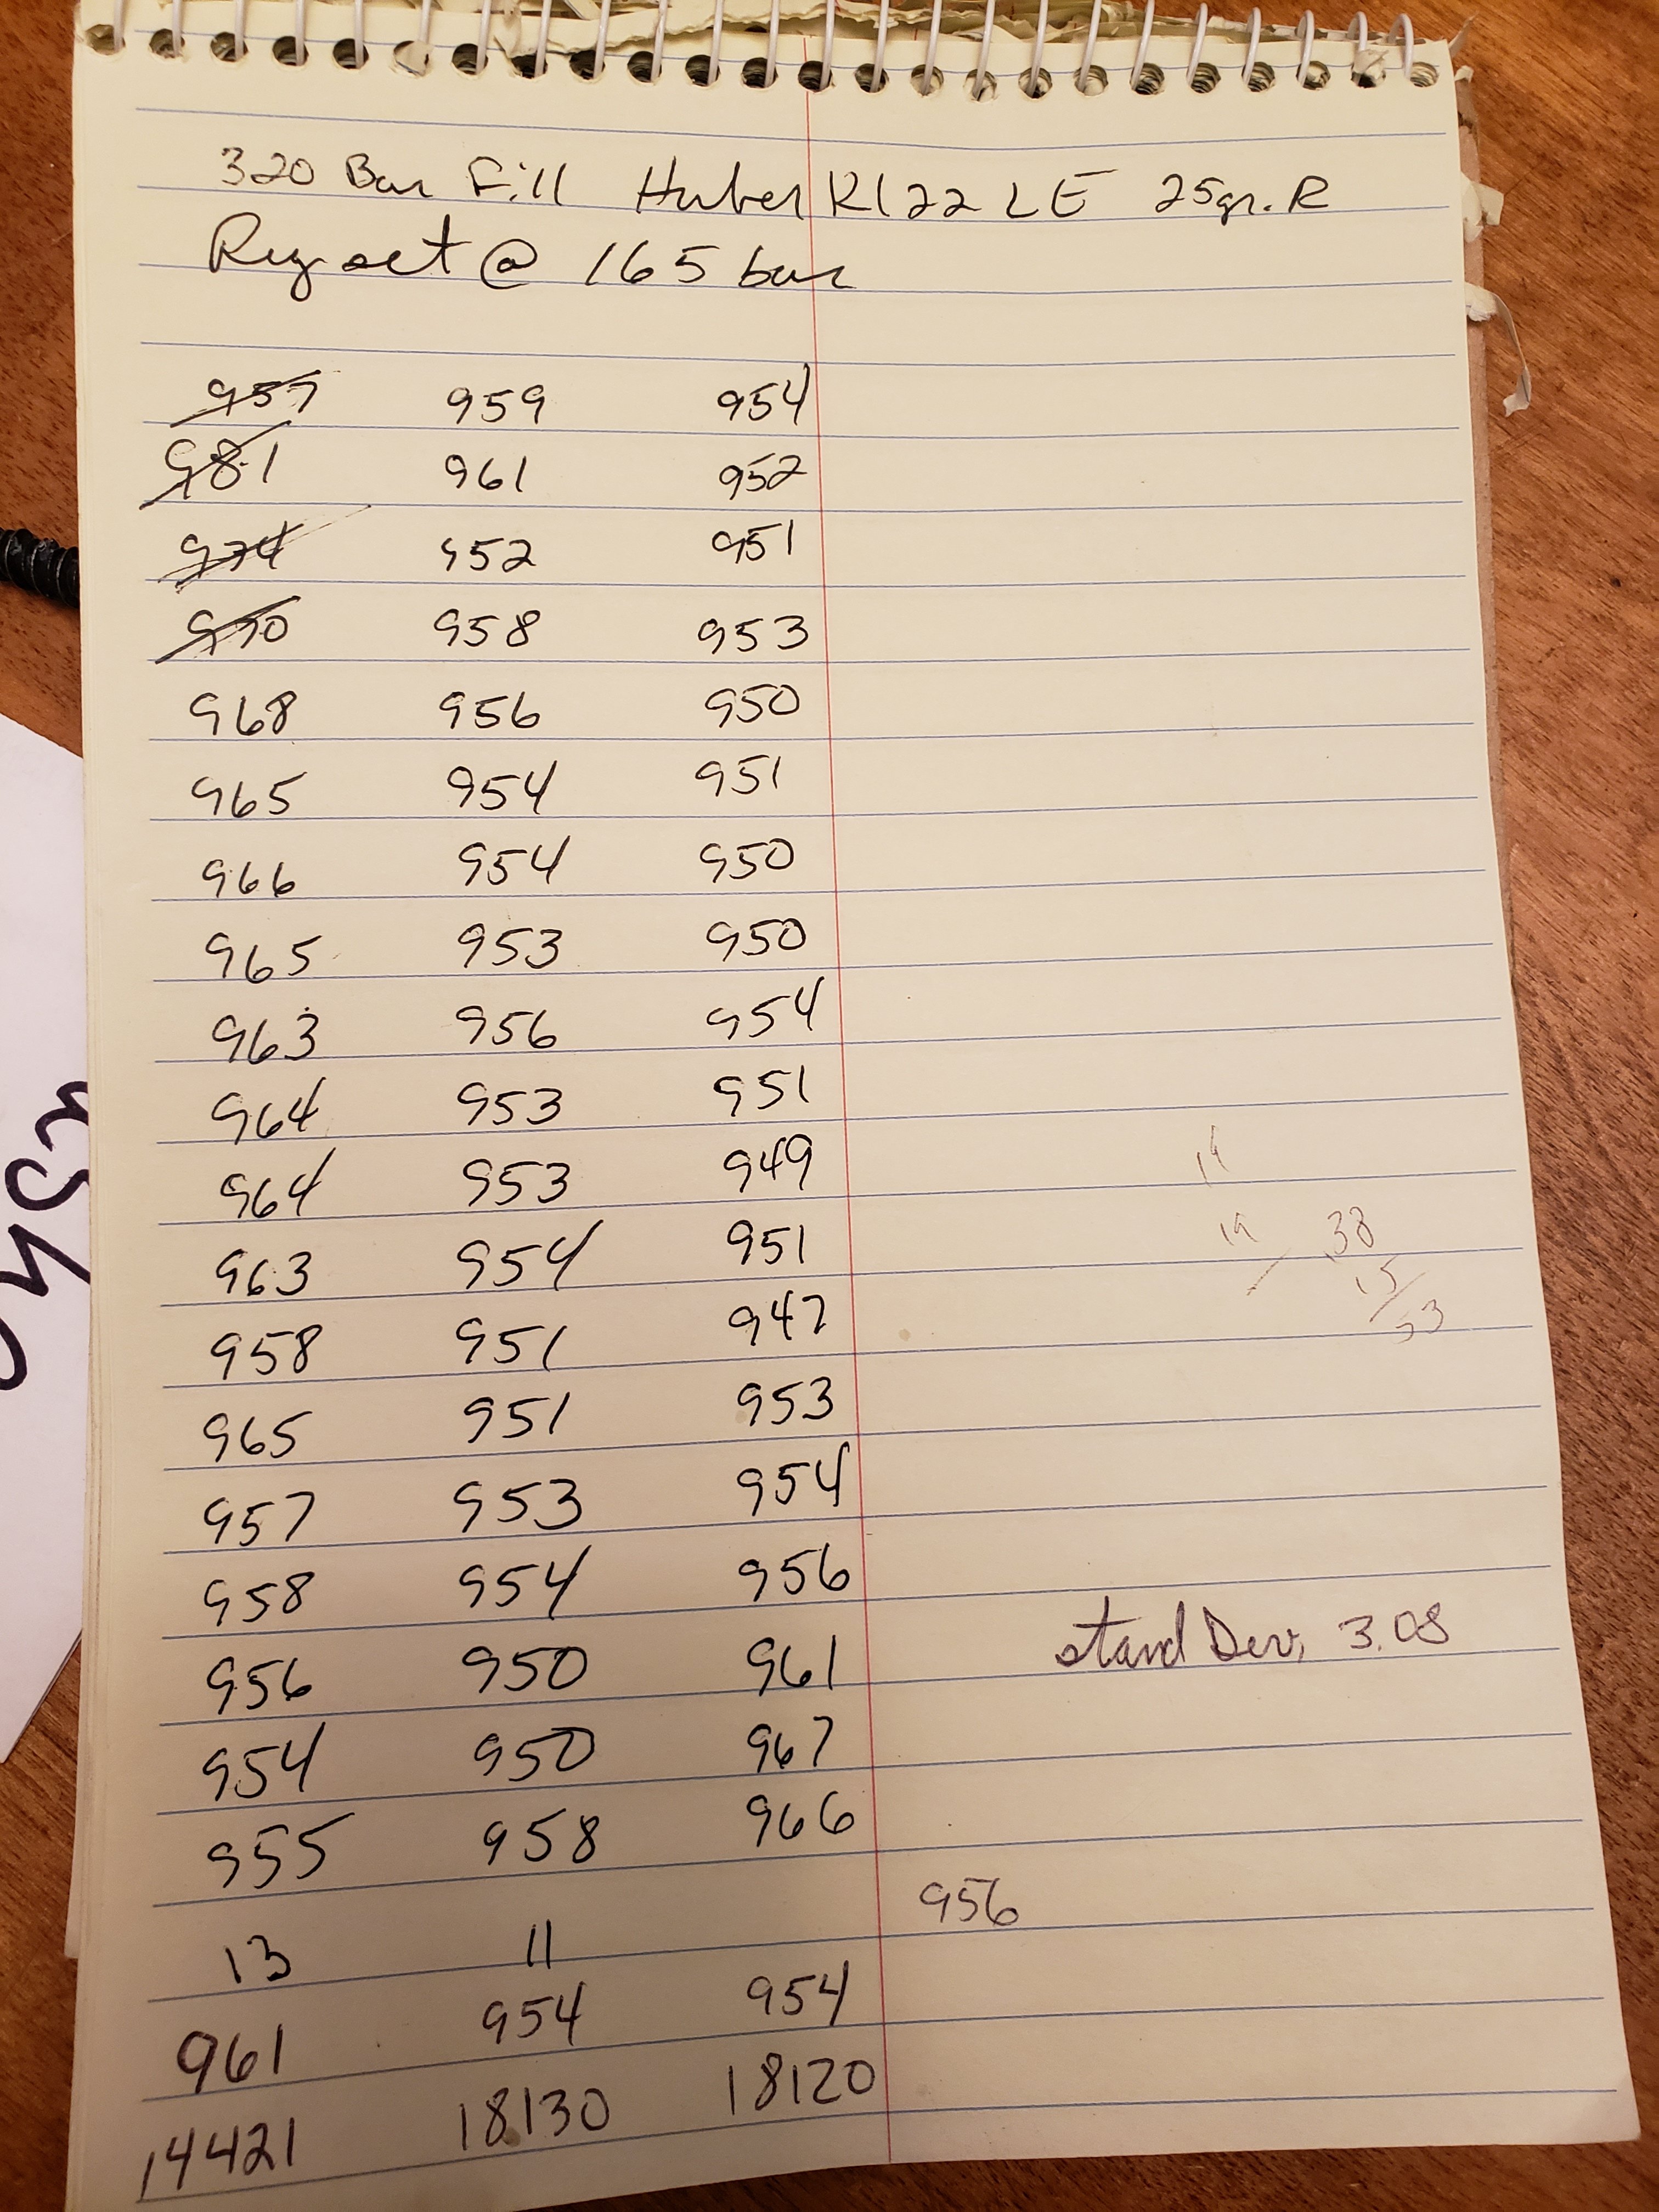 320 Bar Fill Huber K122 LE 25gr. R
Reg set @ 165 bar
957 959 954
981 961 952
974 952 951
970 958 953
968 956 950
965 954 951
966 954 950
965 953 950
963 956 954
964 953 951
964 953 949
19
963 954 951
19 38
958 951 947
15
53
965 951 953
957 953 954
958 954 956
956 950 961
stand Dev, 3.08
954 950 967
955 958 966
956
13 11
961 954 954
14421 18130 18120